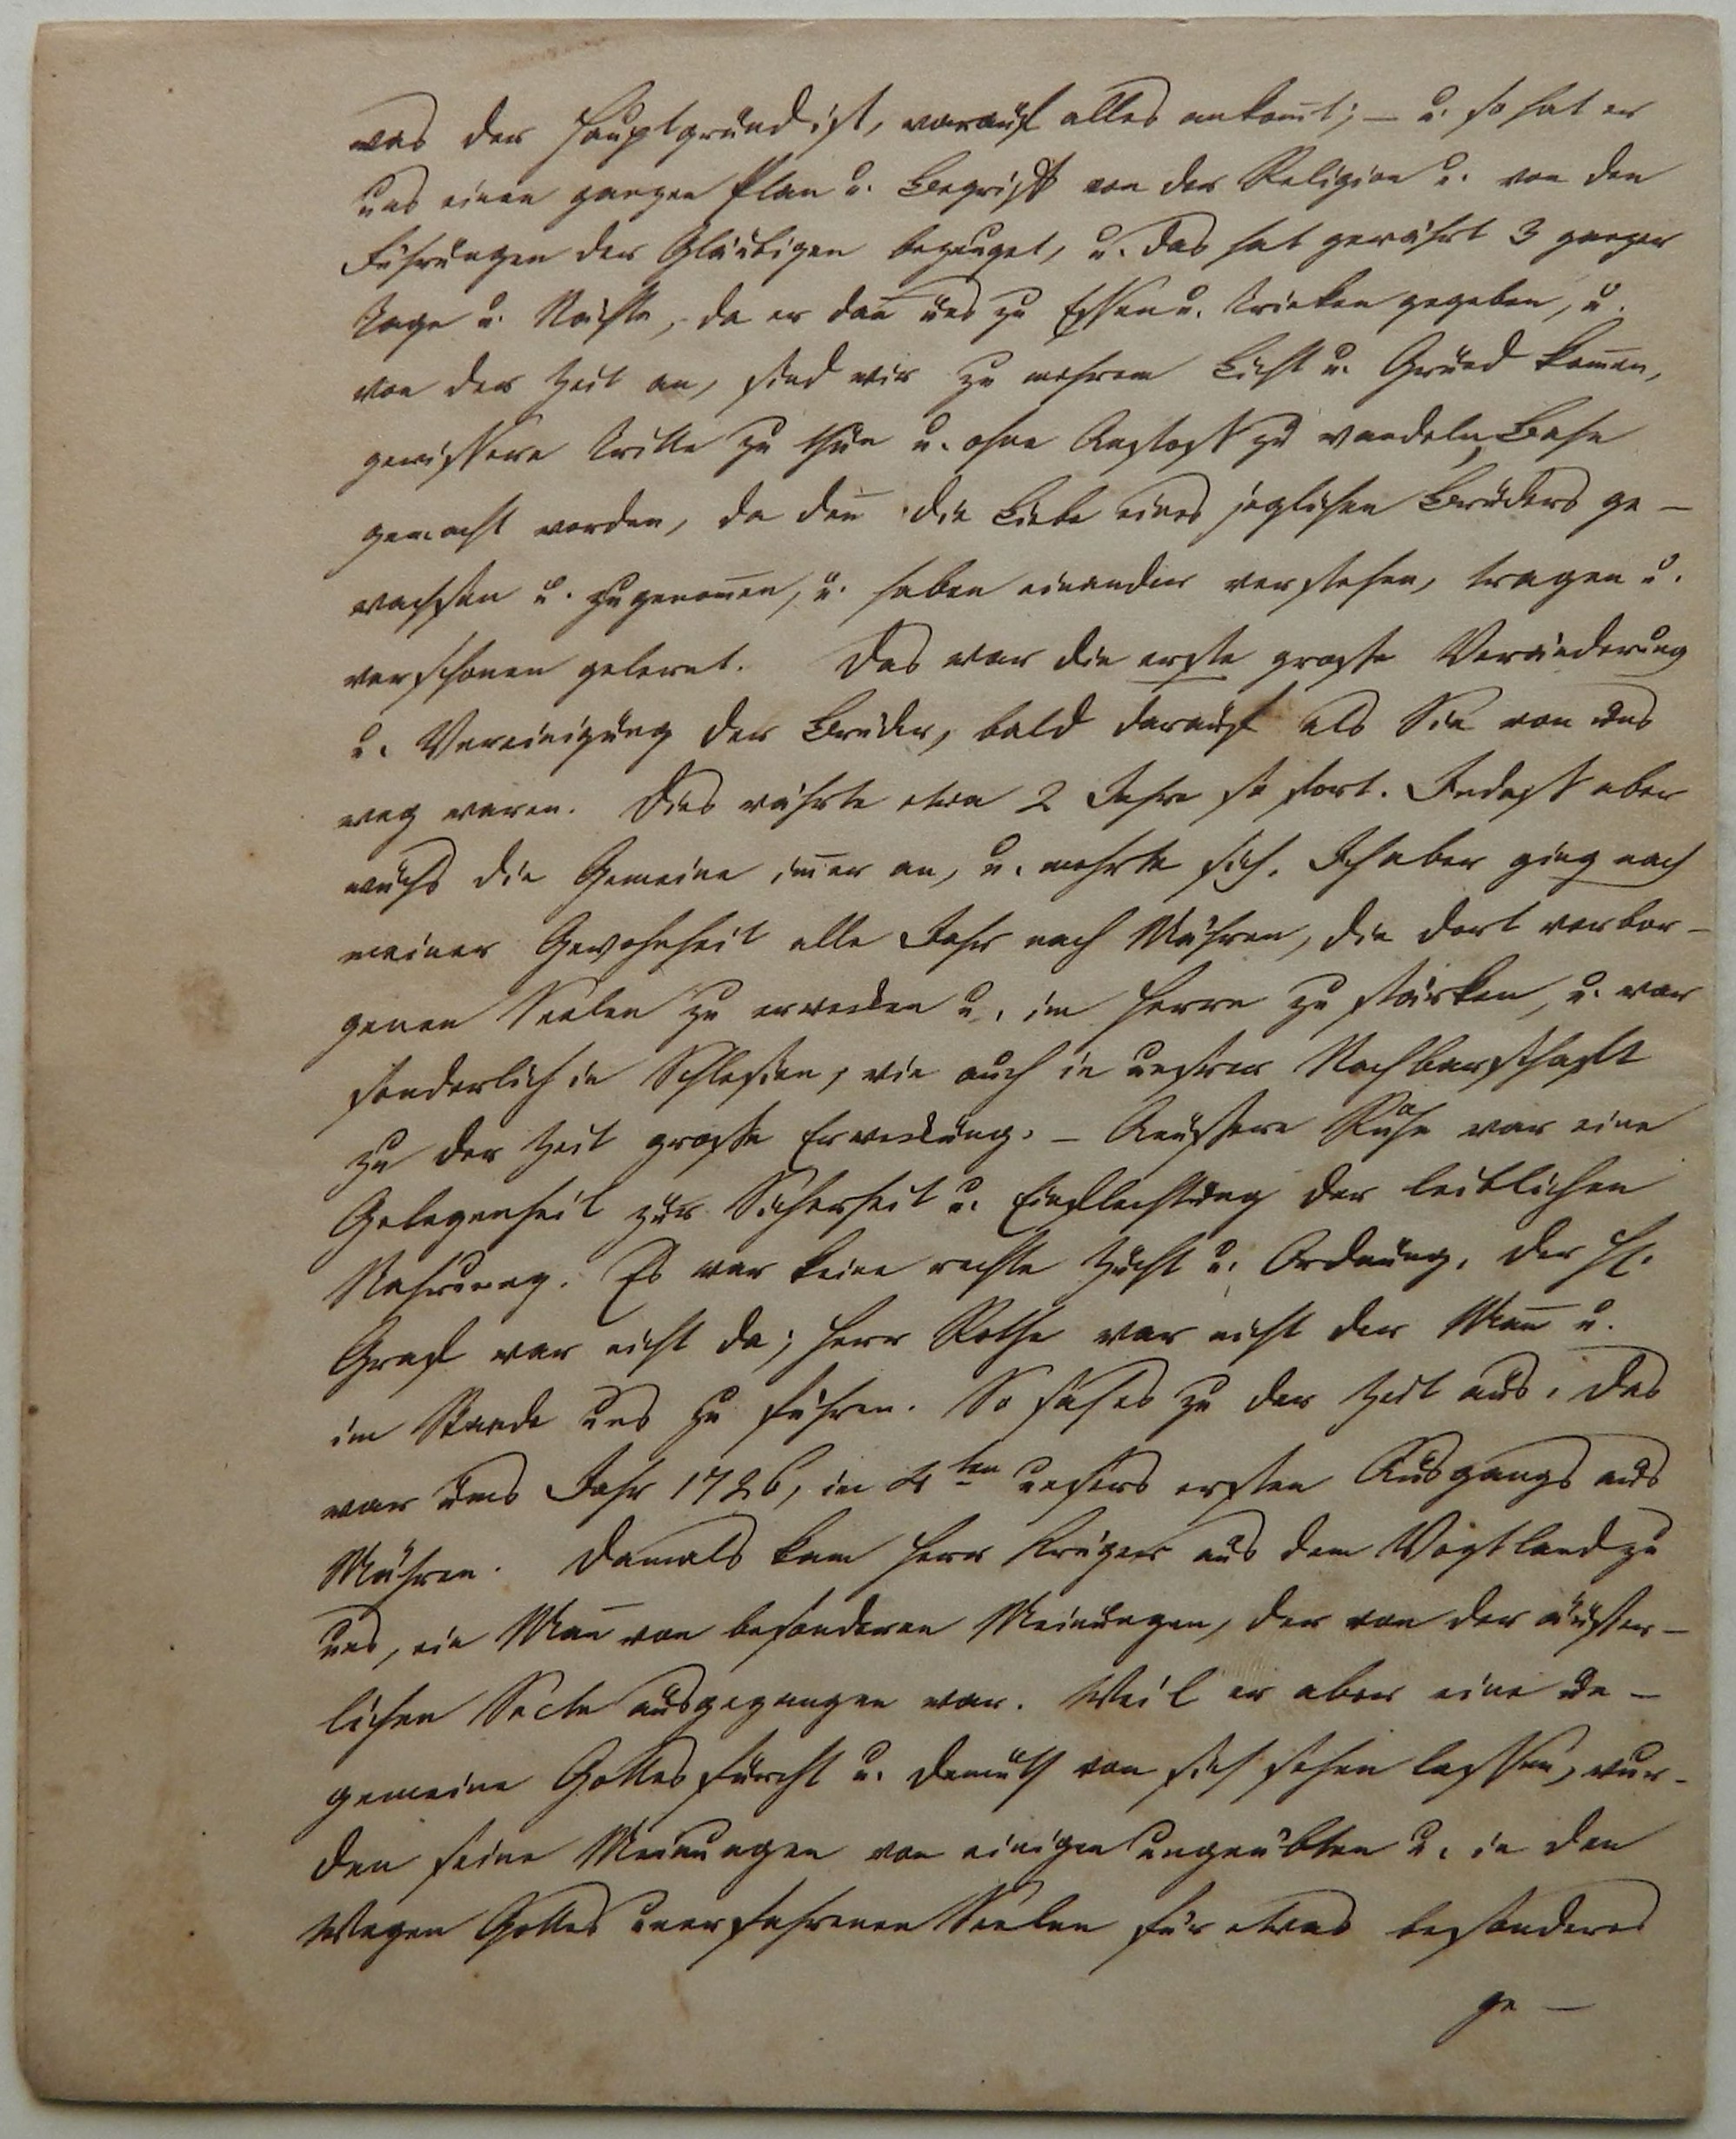 was der Hauptgrund ist, worauf alles ankom̄t; – u. so hat er
uns einen ganzen Plan u. Begriff von der Religion u. von den
Führungen der Gläubigen bezeuget, u. das hat gewährt 3 ganzer
Tage u. Nächte, da er dan̄ uns zu Essen u. Trinken gegeben, u.
von der Zeit an, sind wir zu mehrem Licht u. Grund kom̄en,
gewissere Tritte zu thun u. ohne Anstoß zu wandeln, Bahn
gemacht worden, da den̄ die Liebe eines jeglichen Bruders ge–
wachsen u. zugenom̄en, u. haben einander verstehen, tragen u.
verschonen gelernt. Das war die erste grosse Veränderung
u. Vereinigung der Brüder, bald darauf als Sie von uns
weg waren. Dies währte etwa 2 Jahre so fort. Indeß aber
wuchs die Gemeine im̄er an, u. mehrte sich. Ich aber ging nach
meiner Gewohnheit alle Jahr nach Mähren, die dort verbor–
genen Seelen zu erwecken u. im Herrn zu stärken, u. war
sonderlich in Schlesien, wie auch in unsrer Nachbarschafft
zu der Zeit grosse Erweckung. – Aeussere Ruhe war eine
Gelegenheit zur Sicherheit u. Einflechtung der leiblichen
Nahrung. Es war keine rechte Zucht u. Ordnung. Der H.
Graf war nicht da; Herr Rothe war nicht der Man̄ u.
im Stande uns zu führen. So sah es zu der Zeit aus. Das
war ums Jahr 1726, im 4ten unsers ersten Ausgangs aus
Mähren. Damals kam Herr Krüger aus dem Vogtland zu
uns, ein Man̄ von besonderen Meinungen, der von der äusser–
lichen Secte ausgegangen war. Weil er aber eine un–
gemeine Gottesfurcht u. Demuth von sich sehen lassen, wur–
den seine Meinungen von einigen ungeübten u. in den
Wegen Gottes unerfahrenen Seelen für etwas besonderes
ge –